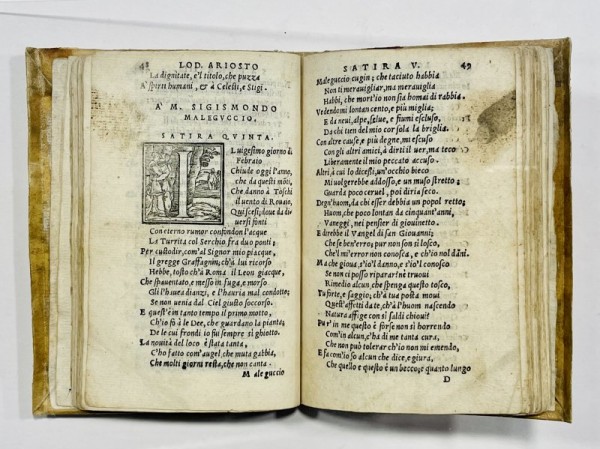 48 LOD. ARIOSTO
La dignitate, e'l titolo, che puzza
A' spirti humani, & à Celesti, e Stigi.
A' M. SIGISMONDO
MALEGVCCIO,
SATIRA QVINTA.
IL uigesimo giorno di
Febraio
Chiude oggi l'anno,
che da questi mõti,
Che danno à Toschi
il uento di Rouaio,
Qui scesi, doue da di
uersi fonti
Con eterno rumor confondon l'acque
La Turrita col Serchio fra duo ponti;
Per custodir, com'al Signor mio piacque,
Il gregge Graffagnin, ch'à lui ricorso
Hebbe, tosto ch'à Roma il Leon giacque,
Che spauentato, e messo in fuga, e morso
Gli l'hauea dianzi, e l'hauria mal condotto;
Se non uenia dal Ciel giusto soccorso.
E quest'è in tanto tempo il primo motto,
Ch'io fò à le Dee, che guardano la pianta;
De le cui frondi io fui sempre sì ghiotto.
La nouità del loco è stata tanta,
C'ho fatto com'augel, che muta gabbia,
Che molti giorni resta, che non canta.
Maleguccio
SATIRA V. 49
Maleguccio cugin; che taciuto habbia
Non ti merauigliar, ma merauiglia
Habbi, che mort'io non sia homai di rabbia.
Vedendomi lontan cento, e più miglia;
E da neui, alpe, selue, e fiumi escluso,
Da chi tien del mio cor sola la briglia.
Con altre cause, e più degne, mi escuso
Con gli altri amici, à dirti il uer, ma teco
Liberamente il mio peccato accuso.
Altri, à cui lo dicesti, un'occhio bieco
Mi uolgerebbe addosso, e un muso stretto;
Guarda poco ceruel, poi diria seco.
Degn'huom, da chi esser debbia un popol retto;
Huom, che poco lontan da cinquant'anni,
Vaneggi, nei pensier di giouinetto.
E direbbe il Vangel di san Giouanni;
Che se ben'erro; pur non son sì losco,
Che'l mi'error non conosca, e ch'io nol dãni.
Ma che gioua, s'io'l danno, e s'io'l conosco
Se non ci posso riparar nè truoui
Rimedio alcun, che spenga questo tosco,
Tu forte, e saggio; ch'à tua posta moui
Quest'affetti da te, ch'à l'huom nascendo
Natura affige con sì saldi chioui!
Pur in me questo è forse non sì horrendo
Com'in alcun, c'ha di me tanta cura,
Che non può tolerar ch'io non mi emendo,
E fa com'io so alcun che dice, e giura,
Che quello e questo è un becco; e quanto lungo
D